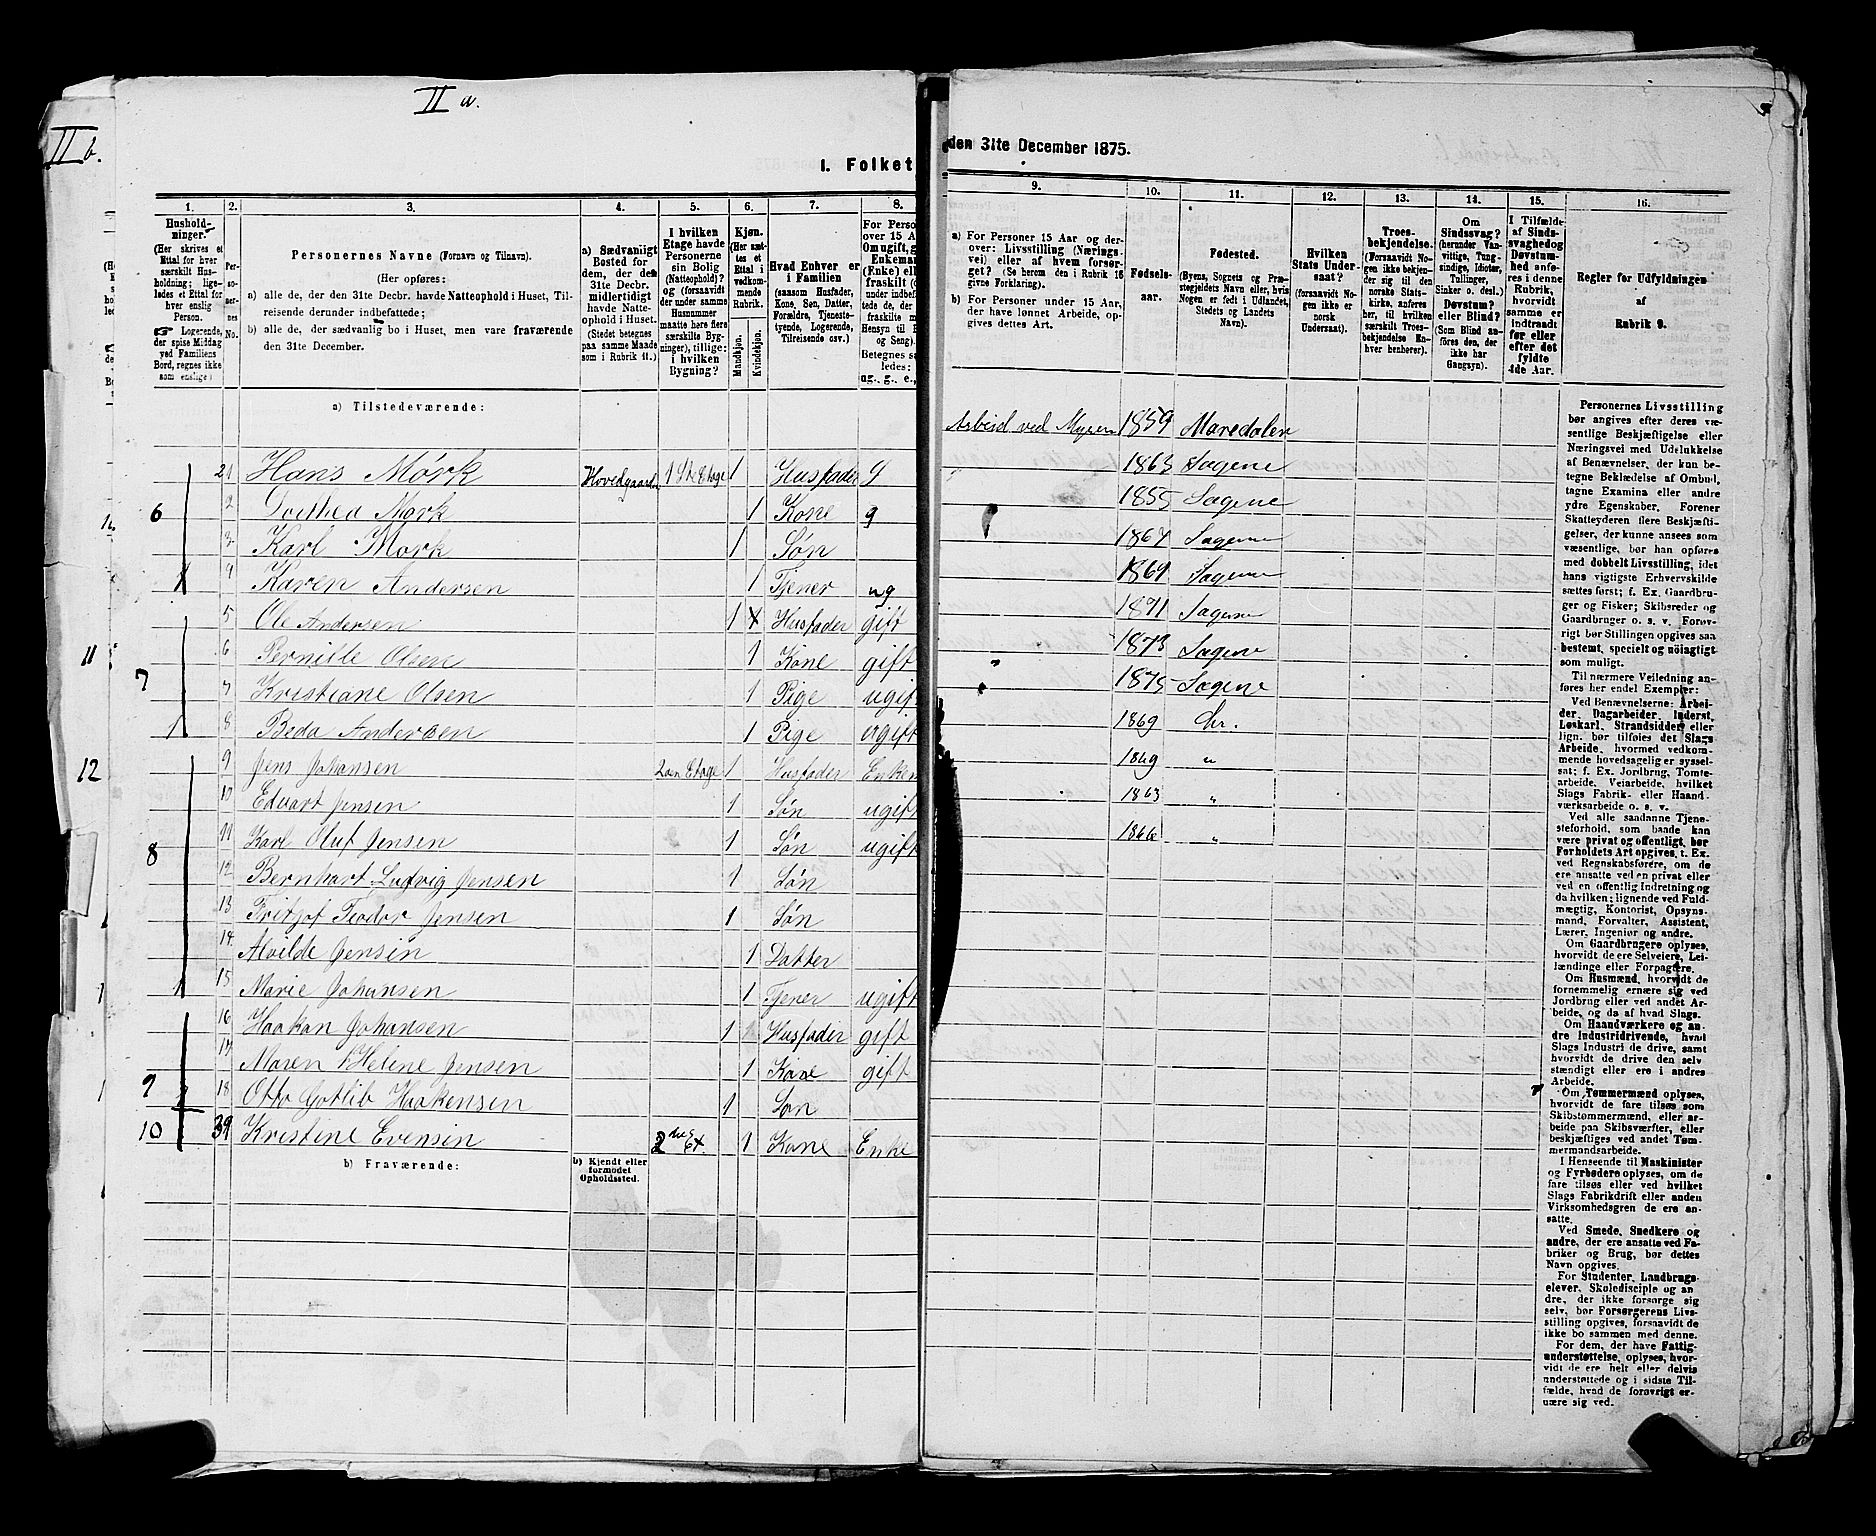 II a.
II b.
I. Folket
1. 2. 3. 4. 5. 6. 7. 8.
Hushold-
ninger.
(Her skrives et
Ettal for hver
særskilt Hus-
holdning; lige-
ledes et Ettal for
hver enslig
Person.
Logerende,
der spise Middag
ved Familiens
Bord, regnes ikke
som enslige.)
Per-
so-
ner-
nes
No.
Personernes Navne (Fornavn og Tilnavn).
(Her opføres:
a) alle de, der den 31te Decbr. havde Natteophold i Huset, Til-
reisende derunder indbefattede;
b) alle de, der sædvanlig bo i Huset, men vare fraværende
den 31te December.
a) Sædvanligt
Bosted for
dem, der den
31te Decbr.
midlertidigt
havde Natte-
ophold i Huset.
(Stedet betegnes
paa samme Maade
som i Rubrik 11.)
I hvilken
Etage havde
Personerne
sin Bolig
(Natteophold)?
og (forsaavidt
der under samme
Husnummer
maatte høre flere
særskilte Byg-
ninger), tillige:
i hvilken
Bygning?
Kjøn.
(Her sæt-
tes et
Ettal i
vedkom-
mende
Rubrik.
Mandkjøn.
Kvindekjøn.
Hvad Enhver er
i Familien
(saasom Husfader,
Kone, Søn, Datter,
Forældre, Tjeneste-
tyende, Logerende,
Tilreisende osv.)
For Perso
over 15 Aar
Om ugift, g
Enkema
(Enke) ell
fraskilt (
under indbef
tede de, der
fraskilte m
Hensyn til B
og Seng).
Betegnes saa
ledes:
ug., g., e.,
a) Tilstedeværende:
21 Hans Mørk Hovedgaarden 1 Ste Etage 1 Husfader g
6 2 Dorthea Mørk 1 Kone g
3 Karl Mørk 1 Søn
4 Karen Andersen 1 Tjener ug
5 Ole Andersen 1 Husfader gift
11 6 Pernille Olsen 1 Kone gift
7 7 Kristiane Olsen 1 Pige ugift
8 Beda Andersen 1 Pige ugift
12 9 Jens Johansen 2den Etage 1 Husfader Enkem
10 Edvart Jensen 1 Søn ugift
8 11 Karl Oluf Jensen 1 Søn ugift
12 Bernhart Ludvig Jensen 1 Søn
13 Fritjof Teodor Jensen 1 Søn
14 Alvilde Jensen 1 Datter
15 Marie Johansen 1 Tjener ugift
16 Haakan Johansen 1 Husfader gift
17 Maren Helene Jensen 1 Kone gift
9 18 Otto Gotlib Haakensen 1 Søn
10 39 Kristine Evensen 1 Kone Enke
b) Fraværende:
b) Kjendt eller
formodet
Opholdssted.
den 31te December 1875.
9. 10. 11. 12. 13. 14. 15. 16.
a) For Personer 15 Aar og der-
over: Livsstilling (Nærings-
vei) eller af hvem forsør-
get? (Se herom den i Rubrik 16
givne Forklaring).
b) For Personer under 15 Aar,
der have lønnet Arbeide, op-
gives dettes Art.
Fødsels-
aar.
Fødested.
(Byens, Sognets og Præ-
stegjeldets Navn eller, hvis
Nogen er født i Udlandet,
Stedets og Landets
Navn).
Hvilken
Stats Under-
saat?
(forsaavidt No-
gen ikke er
norsk
Undersaat).
Troes-
bekjendelse.
(Forsaavidt No-
gen ikke bekjen-
der sig til den
norske Stats-
kirke, anføres
her, til hvilken
særskilt Troes-
bekjendelse En-
hver henhører).
Om
Sindssvag?
(herunder Van-
vittige, Tung-
sindige, Idioter,
Tullinger,
Sinker o. desl.)
Døvstum?
eller Blind?
(Som Blind an-
føres den, der
ikke har
Gangsyn).
I Tilfælde
af Sinds-
svaghed og
Døvstum-
hed anfø-
res i denne
Rubrik,
hvorvidt
samme er
indtraadt
før eller
efter det
fyldte
4de Aar.
Regler for Udfyldningen
af
Rubrik 9.
Arbeid ved Myren 1859 Maredalen
1863 Sagene
1855 Sagene
1867 Sagene
1869 Sagene
1871 Sagene
1873 Sagene
1875 Sagene
1869 Chr.
1869 "
1863 "
1866 "
Personernes Livsstilling
bør angives efter deres væ-
sentlige Beskjæftigelse eller
Næringsvei med Udelukkelse
af Benævnelser, der kun be-
tegne Beklædelse af Ombud,
tagne Examina eller andre
ydre Egenskaber. Forener
Skatteyderen flere Beskjæfti-
gelser, der kunne ansees som
væsentlige, bør han opføres
med dobbelt Livsstilling, idet
hans vigtigste Erhvervskilde
sættes først; f. Ex. Gaardbru-
ger og Fisker; Skibsreder og
Gaardbruger o. s. v. Forøv-
rigt bør Stillingen opgives saa
bestemt, specielt og nöiagtigt
som muligt.
Til nærmere Veiledning an-
føres her endel Exempler:
Ved Benævnelserne: Arbei-
der, Dagarbeider, Inderst,
Løskarl, Strandsidder eller
lign. bør tilføies det Slags
Arbeide, hvormed vedkom-
mende hovedsagelig er syssel-
sat; f. Ex. Jordbrug, Tomte-
arbeide, Veiarbeide, hvilket
Slags Fabrik- eller Haand-
værksarbeide o. s. v.
Ved alle saadanne Tjene-
steforhold, som baade kan
være privat og offentligt, bør
Forholdets Art opgives, t. Ex.
ved Regnskabsførere, om de
ere ansatte ved en privat eller
ved en offentlig Indretning og
da hvilken; lignende ved Fuld-
mægtig, Kontorist, Opsyns-
mand, Forvalter, Assistent,
Lærer, Ingeniør og andre.
Om Gaardbrugere oplyses,
hvorvidt de ere Selveiere, Lei-
lændinge eller Forpagtere.
Om Husmænd, hvorvidt de
fornemmelig ernære sig ved
Jordbrug eller ved andet Ar-
beide, og da af hvad Slags.
Om Haandværkere og an-
dre Industridrivende, hvad
Slags Industri de drive, samt
hvorvidt de drive den selv-
stændigt eller ere i andres
Arbeide.
Om Tømmermænd oplyses,
hvorvidt de fare tilsøs som
Skibstømmermænd, eller ar-
beide paa Skibsværfter, eller
beskjæftiges ved andet Tøm-
mermandsarbeide.
I Henseende til Maskinister
og Fyrbødere oplyses, om de
fare tilsøs eller ved hvilket
Slags Fabrikdrift eller anden
Virksomhedsgren de ere an-
satte.
Ved Smede, Snedkere og
andre, der ere ansatte ved Fa-
briker og Brug, bør dettes
Navn opgives.
For Studenter, Landbrugs-
elever, Skoledisciple og an-
dre, der ikke forsørge sig
selv, bør Forsørgerens Livs-
stilling opgives, forsaavidt de
ikke bo sammen med denne.
For dem, der have Fattig-
understøttelse, oplyses, hvor-
vidt de ere helt eller delvis
understøttede og i sidste Til-
fælde, hvad de forøvrigt er-
nære sig ved.